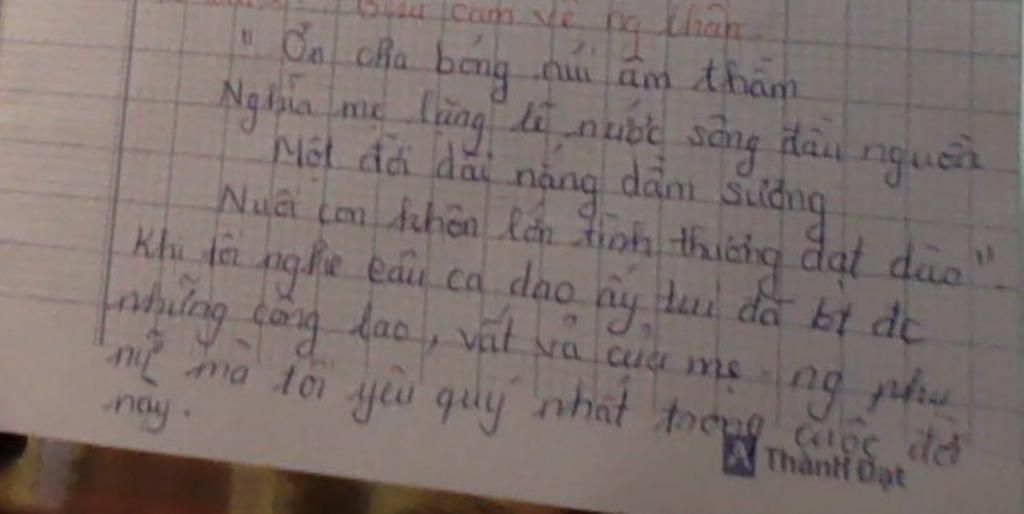 Biểu cảm về ng thân.
" Ơn cha bóng núi âm thầm
Nghĩa mẹ lặng lẽ nước sông đầu nguồn
Một đời dãi nắng dầm sương
Nuôi con khôn lớn tình thương dạt dào".
Khi tôi nghe câu ca dao ấy tui đã bt đc
những công lao, vất vả của mẹ. ng phụ
nữ mà tôi yêu quý nhất trong cuộc đời
này.
A Thành Đạt